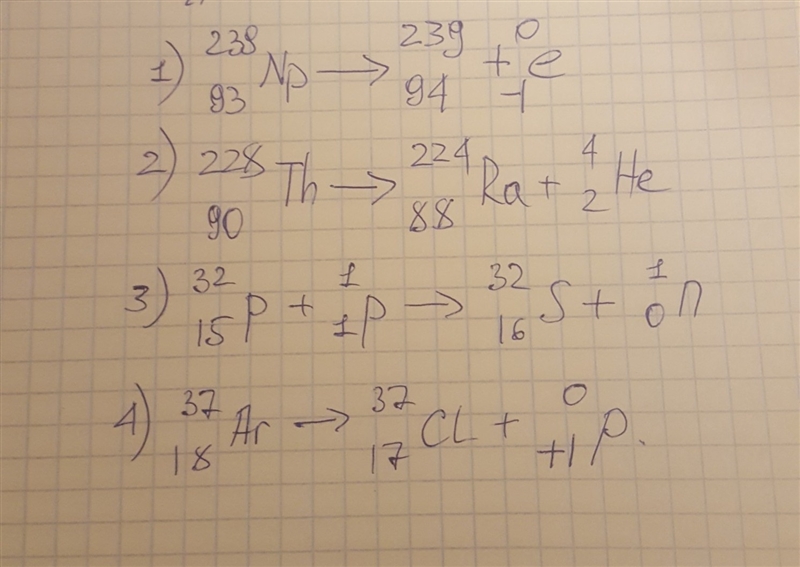 1) ²³⁹₉₃Np → ²³⁹₉₄ + ⁰₋₁e
2) ²²⁸₉₀Th → ²²⁴₈₈Ra + ⁴₂He
3) ³²₁₅P + ¹₁p → ³²₁₆S + ¹₀n
4) ³⁷₁₈Ar → ³⁷₁₇Cl + ⁰₊₁p.